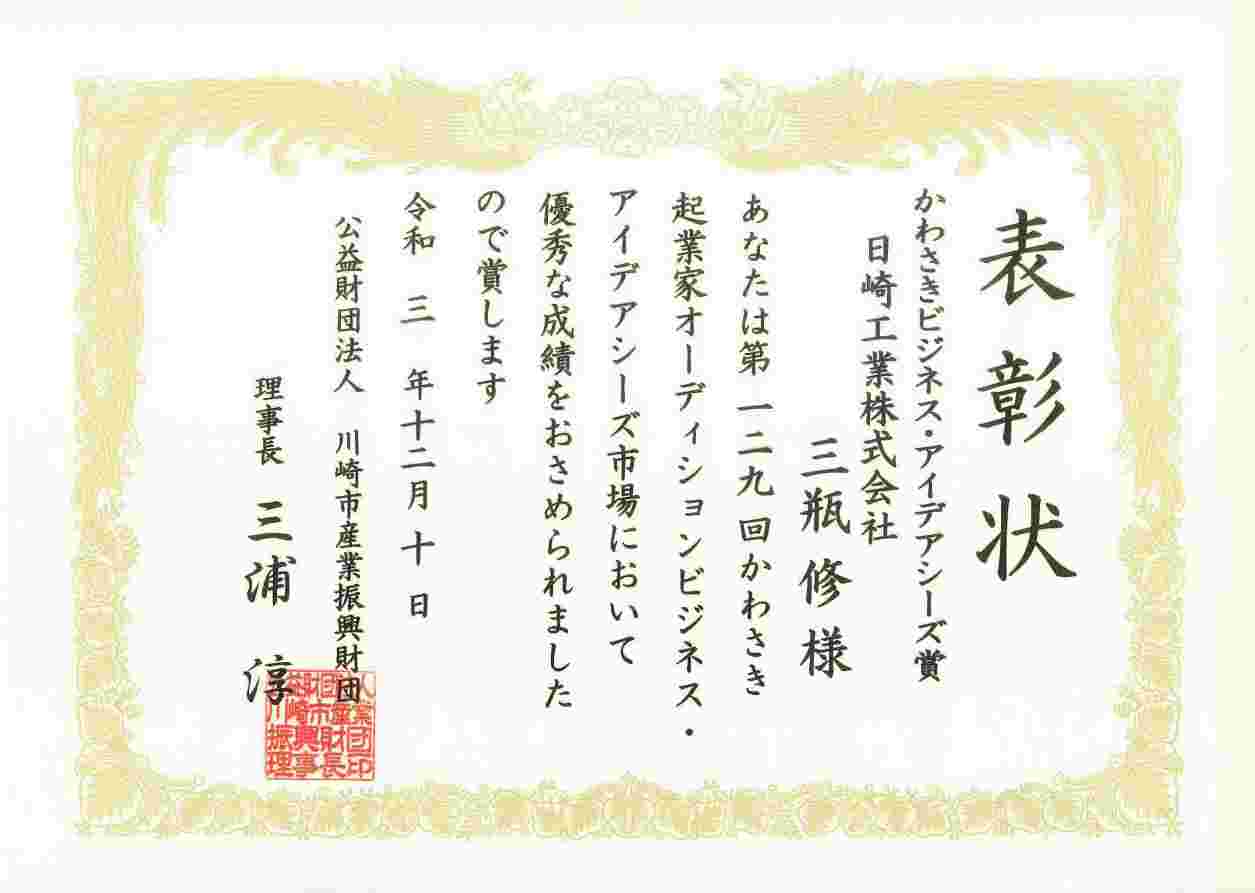 表彰状
かわさきビジネス・アイデアシーズ賞
日崎工業株式会社
三瓶修様
あなたは第一二九回かわさき
起業家オーディションビジネス・
アイデアシーズ市場において
優秀な成績をおさめられました
ので賞します
令和 三 年十二月 十 日
公益財団法人 川崎市産業振興財団
理事長 三浦 淳